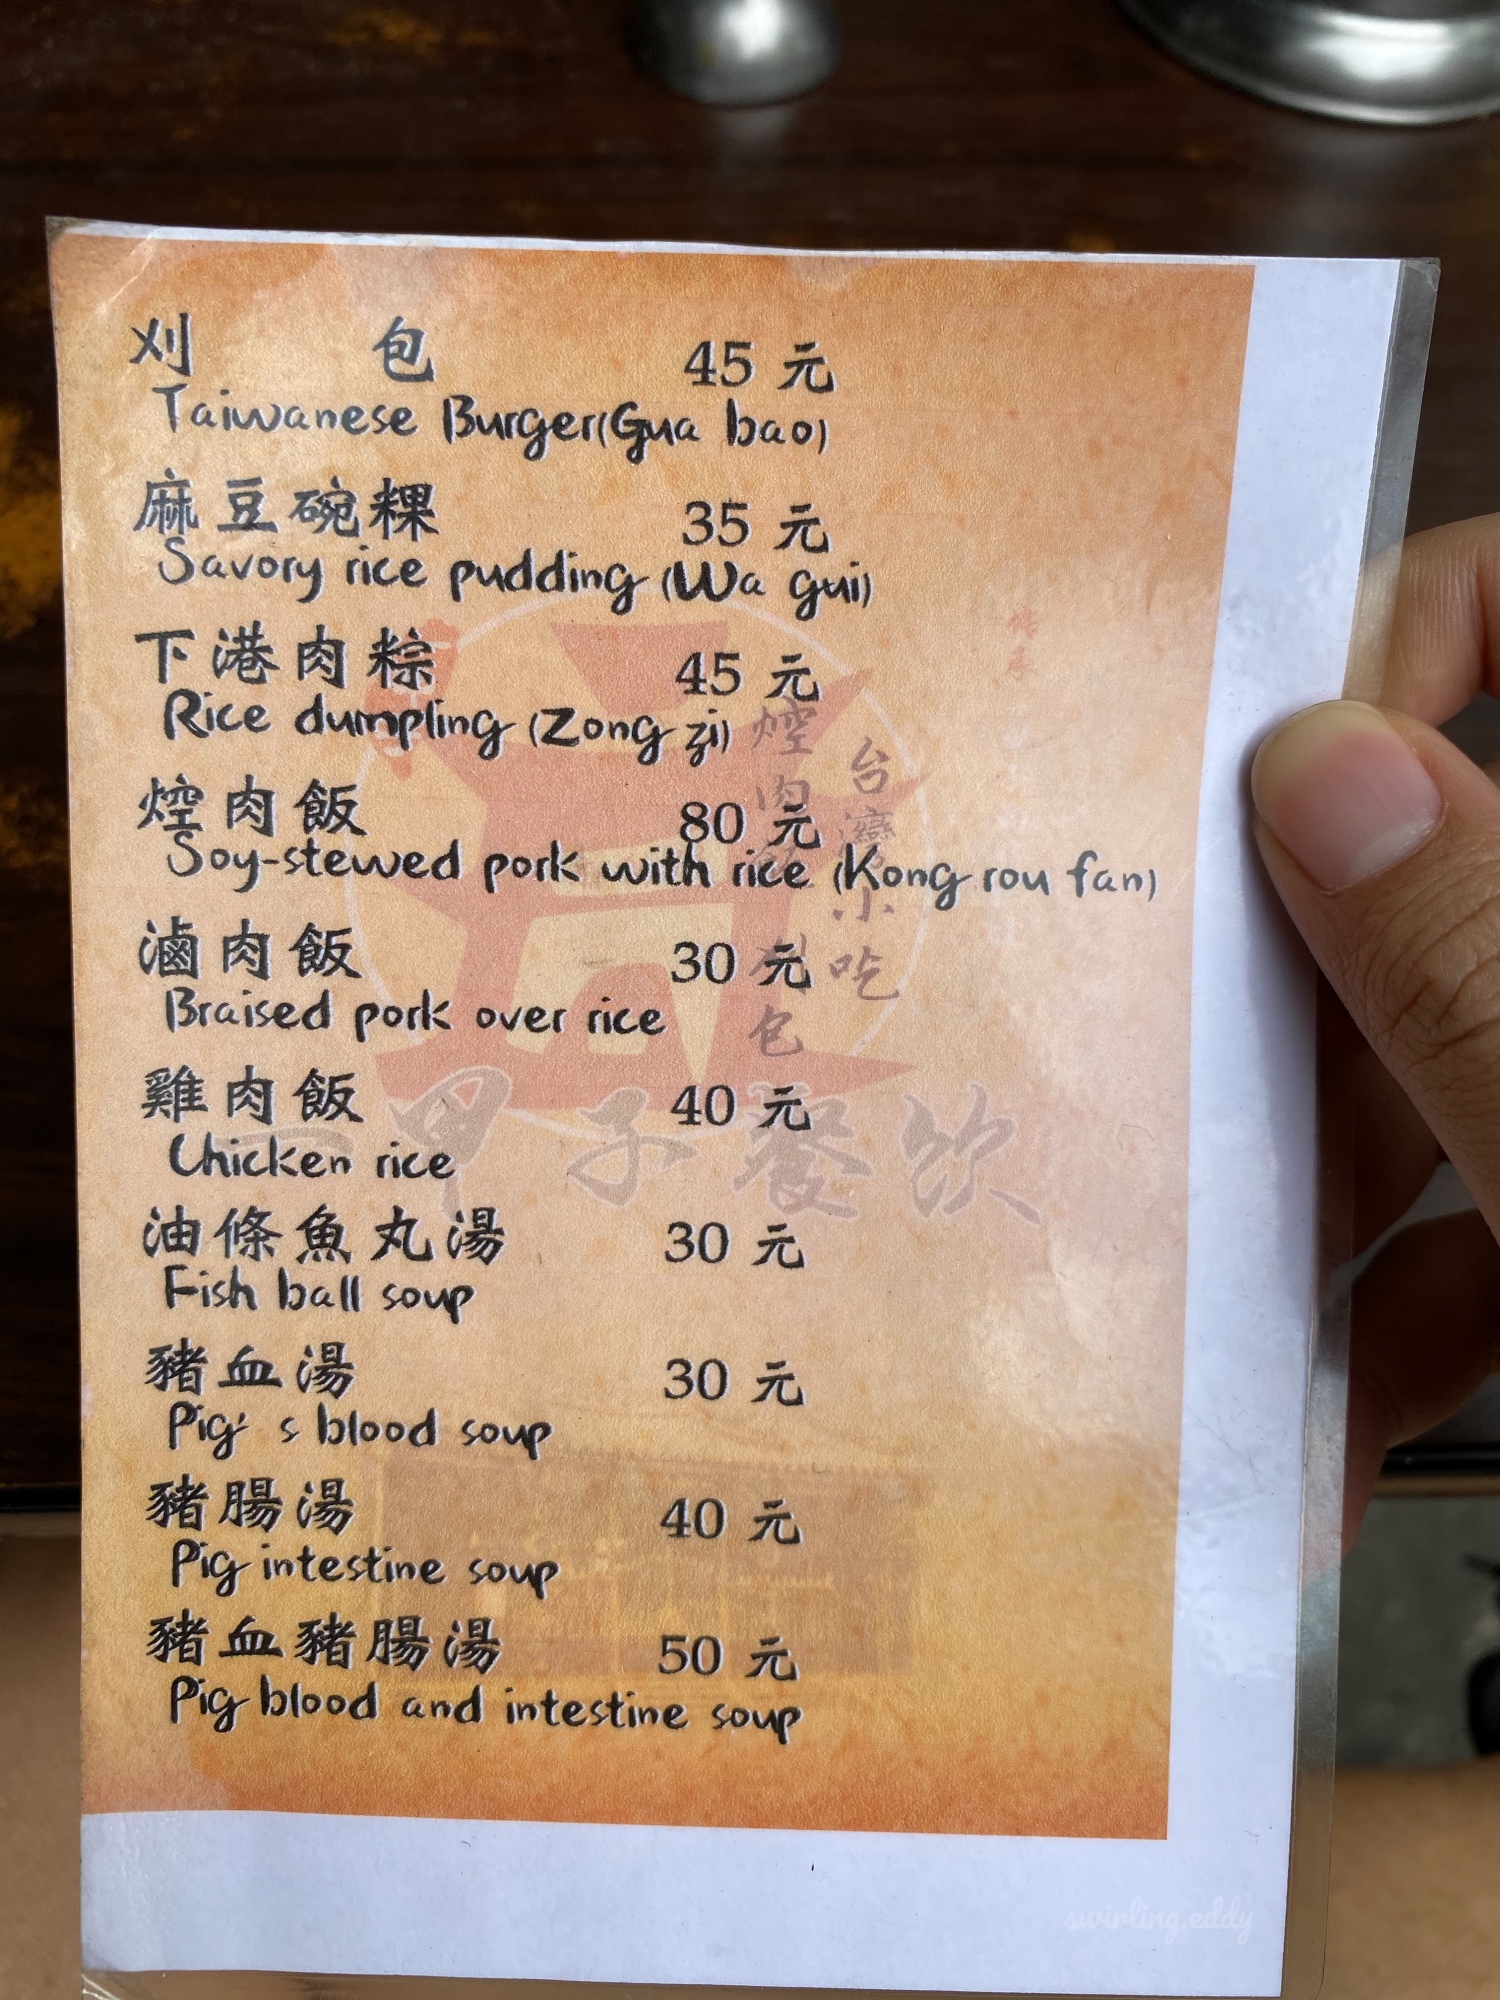 刈包 45 元
Taiwanese Burger(Gua bao)
麻豆碗粿 35 元
Savory rice pudding (Wa gui)
下港肉粽 45 元
Rice dumpling (Zong zi)
焢肉飯 80 元
Soy-stewed pork with rice (Kong rou fan)
滷肉飯 30 元
Braised pork over rice
雞肉飯 40 元
Chicken rice
油條魚丸湯 30 元
Fish ball soup
豬血湯 30 元
Pig's blood soup
豬腸湯 40 元
Pig intestine soup
豬血豬腸湯 50 元
Pig blood and intestine soup
台灣小吃
焢肉飯 刈包
一甲子餐飲
swirling.eddy